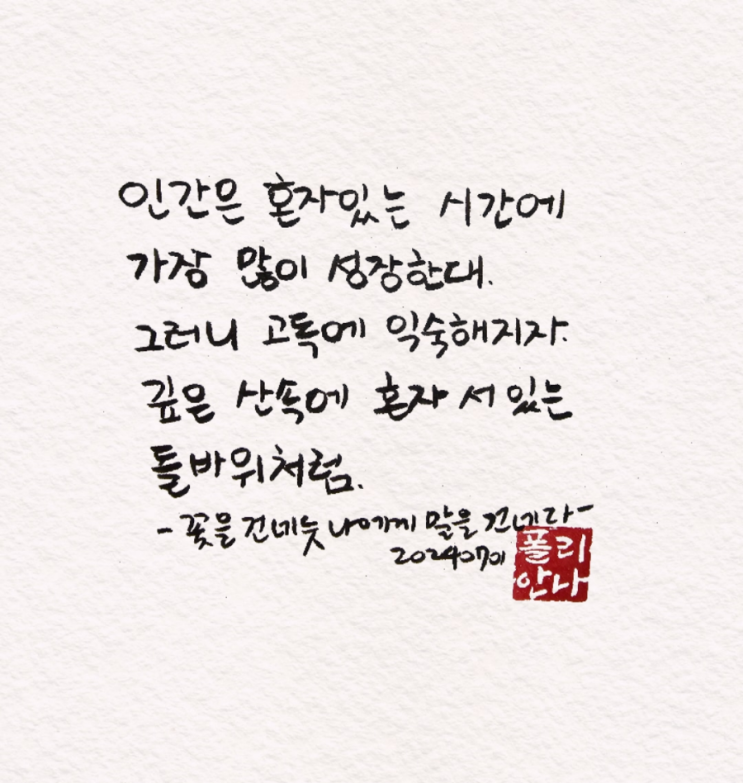 인간은 혼자있는 시간에
가장 많이 성장한대.
그러니 고독에 익숙해지자.
깊은 산속에 혼자 서 있는
돌바위처럼.
-꽃을 건네듯 나에게 말을 건네라-
20240701
폴리
안나